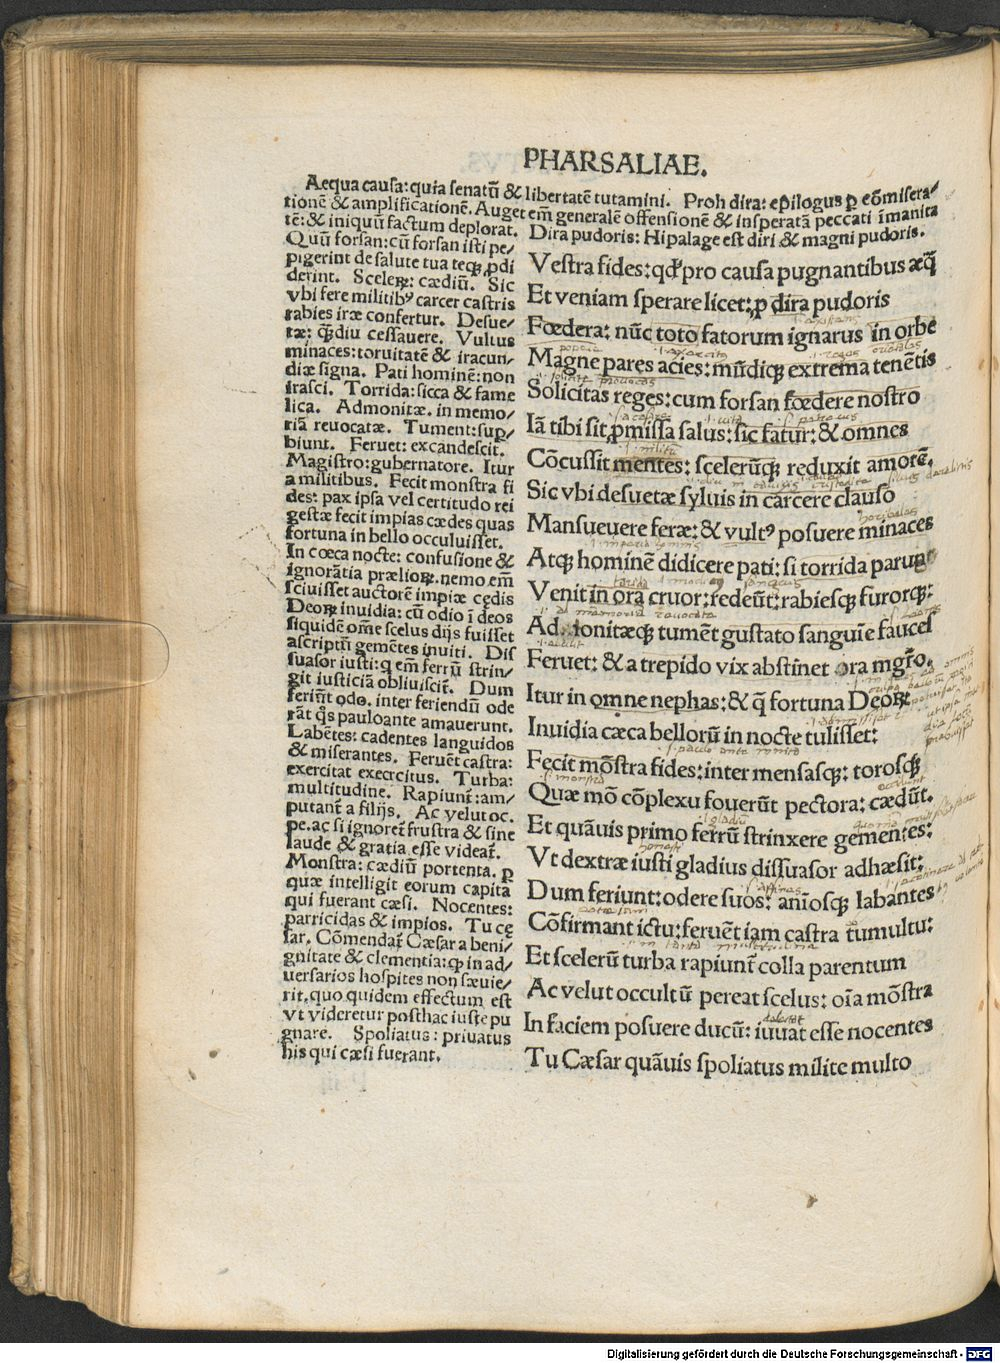 PHARSALIAE.
Aequa causa: quia senatū & libertatē tutamini. Proh dira: epilogus ꝑ cōmisera/
tionē & amplificationē. Auget em̄ generalē offensionē & insperatā peccati īmanita
tē: & iniquū factum deplorat. Dira pudoris: Hipalage est diri & magni pudoris.
Quū forsan: cū forsan isti pe/
pigerint de salute tua teqꝫ ꝓdi
derint. Scelerꝝ: cædiū. Sic
vbi fere militibꝰ carcer castris
rabies iræ confertur. Desue/
tæ: qͣdiu cessauere. Vultus
minaces: toruitatē & iracun/
diæ signa. Pati hominē: non
irasci. Torrida: sicca & fame
lica. Admonitæ. in memo/
riā reuocatæ. Tument: suꝑ/
biunt. Feruet: excandescit.
Magistro: gubernatore. Itur
a militibus. Fecit monstra fi
des: pax ipsa vel certitudo rei
gestæ fecit impias cædes quas
fortuna in bello occuluisset.
In cœca nocte: confusione &
ignorātia prælioꝝ. nemo em̄
sciuisset auctorē impiæ cędis
Deoꝝ inuidia: cū odio ī deos
siquidē om̄e scelus dijs fuisset
ascriptū gemētes inuiti. Dis
suasor iusti: q em̄ ferrū strin/
git iusticiā obliuiscit̄. Dum
feriūt odo. inter feriendū ode
rāt q̊s pauloante amauerunt.
Labētes: cadentes languidos
& miserantes. Feruēt castra:
exercitat execrcitus. Turba:
multitudine. Rapiunt̄: am/
putant̄ a filijs. Ac velut oc.
pe. ac si ignoret̄ frustra & sine
laude & gratia esse videat̄.
Monstra: cædiū portenta. ꝑ
quæ intelligit eorum capita
qui fuerant cæsi. Nocentes:
parricidas & impios. Tu cę
sar. Cōmendat̄ Cæsar a beni/
gnitate & clementia: qꝫ in ad/
uersarios hospites non sæuie/
rit. quo quidem effectum est
vt videretur posthac iuste pu
gnare. Spoliatus: priuatus
his qui cæsi fuerant.
Vestra fides: qd̛ pro causa pugnantibus æq̄
Et veniam sperare licet: ꝓ dira pudoris
Fœdera: nūc toto fatorum ignarus in orbe
Magne pares acies: mūdiqꝫ extrema tenētis
Solicitas reges: cum forsan fœdere nostro
Iā tibi sit ꝓmissa salus: sic fatur: & omnes
Cōcussit mentes: scelerūqꝫ reduxit amorē.
Sic vbi desuetæ syluis in carcere clauso
Mansueuere feræ: & vultꝰ posuere minaces
Atqꝫ hominē didicere pati: si torrida paruus
Venit in ora cruor: redeūt: rabiesqꝫ furorqꝫ:
Admonitæqꝫ tumēt gustato sanguīe fauces
Feruet: & a trepido vix abstinet ora mgr̄o.
Itur in omne nephas: & q̄ fortuna Deoꝝ
Inuidia cæca bellorū in nocte tulisset:
Fecit mōstra fides: inter mensasqꝫ: torosqꝫ
Quæ mō cōplexu fouerūt pectora: cædūt.
Et quāuis primo ferrū strinxere gementes:
Vt dextræ iusti gladius dissuasor adhæsit:
Dum feriunt: odere suos: anīosqꝫ labantes
Cōfirmant ictu: feruēt iam castra tūmultu:
Et scelerū turba rapiunt̄ colla parentum
Ac velut occultū pereat scelus: oīa mōstra
In faciem posuere ducū: iuuat esse nocentes
Tu Cæsar quāuis spoliatus milite multo
Digitalisierung gefördert durch die Deutsche Forschungsgemeinschaft - DFG